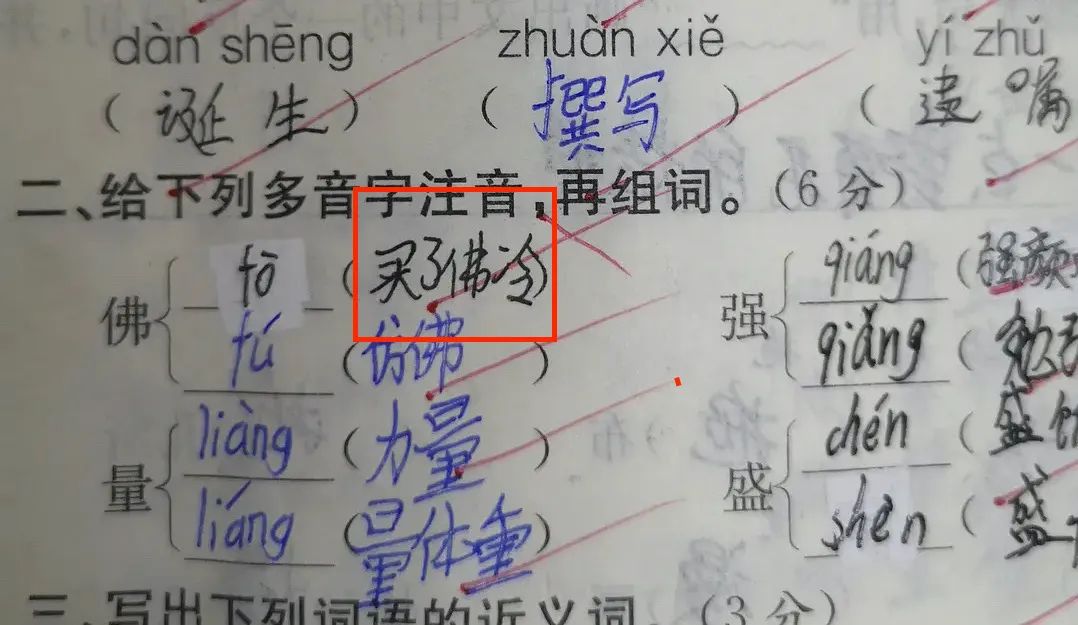 dàn shēng zhuàn xiě yí zhǔ
(诞生) (撰写) (遗嘱
二、给下列多音字注音,再组词。(6分)
佛 fō (买了佛冷) 强 qiáng (强颜
fú (仿佛) qiǎng (勉强
量 liàng (力量) 盛 chén (盛
liáng (量体重) shèn (盛
三、写出下列词语的近义词。(3分)